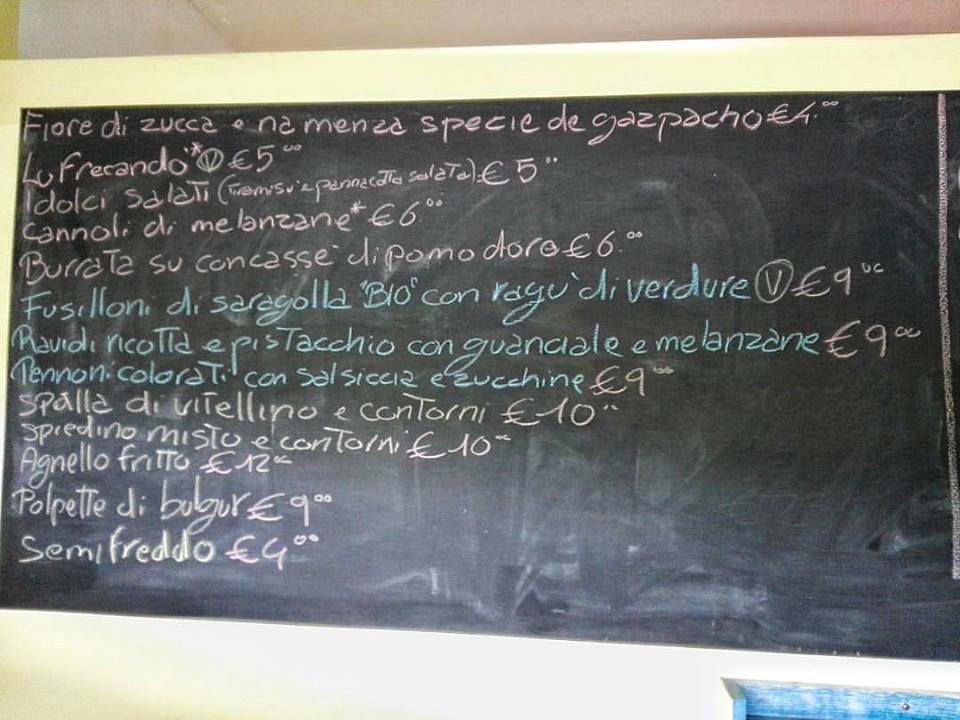 Fiore di zucca e na menza specie de gazpacho €4.00
Lu frecando * V €5.00
I dolci salati (tiramisù e pannacotta salata) €5
cannoli di melanzane* €6.00
Burrata su concassè di pomodoro €6.00
Fusilloni di saragolla "BIO" con ragù di verdure V €9.00
Ravioli ricotta e pistacchio con guanciale e melanzane €9.00
Pennoni colorati con salsiccia e zucchine €9.00
spalla di vitellino e contorni €10
spiedino misto e contorni €10
Agnello fritto €12
Polpette di bulgur €9.00
Semifreddo €4.00